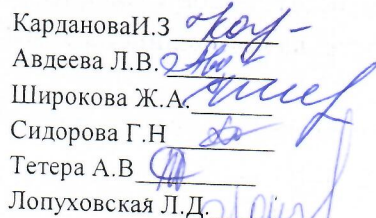 КардановаИ.З
Авдеева Л.В.
Широкова Ж.А.
Сидорова Г.Н
Тетера А.В
Лопуховская Л.Д.